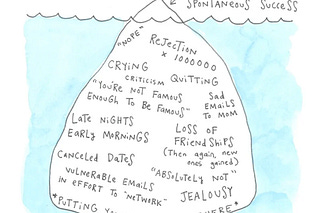 SPONTANEOUS SUCCESS
"NOPE"
REJECTION
x 1000000
CRYING
CRITICISM QUITTING
"YOU'RE NOT FAMOUS
ENOUGH TO BE FAMOUS"
SAD
EMAILS
TO MOM
LATE NIGHTS
EARLY MORNINGS
LOSS OF
FRIENDSHIPS
(Then again, new
ones gained)
CANCELED DATES
"ABSOLUTELY NOT"
VULNERABLE EMAILS
IN EFFORT TO "NETWORK"
JEALOUSY
"PUTTING